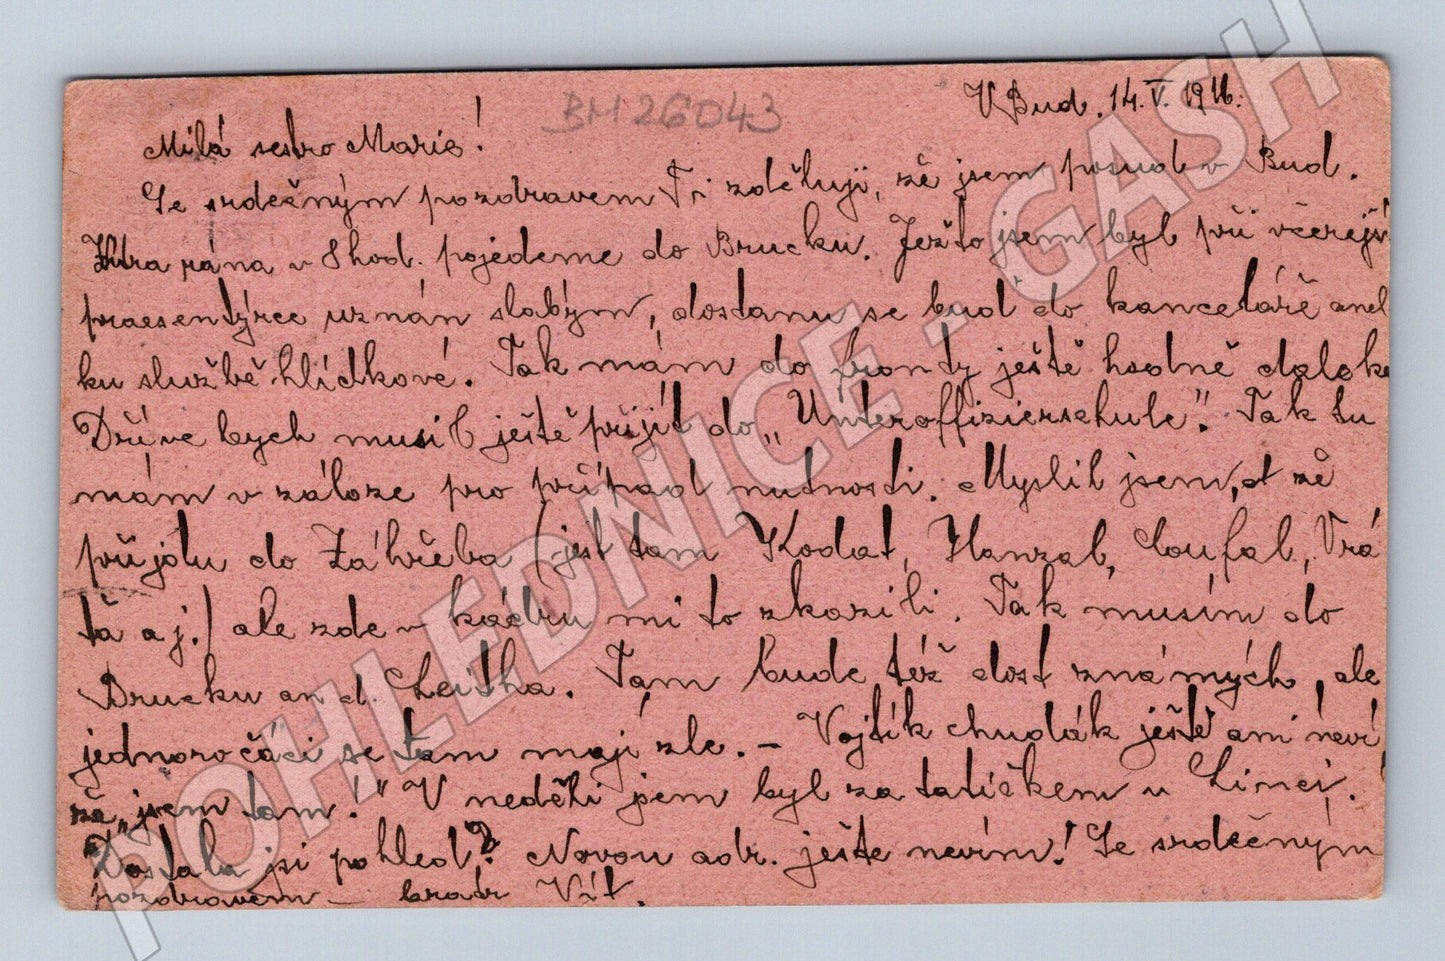 BM26043
V Bud. 14.V. 1916.
Milá sestro Marie!
Se srdečným pozdravem Ti zděluji, zě jsem posud v Bud.
Zítra rána v 8 hod. pojedeme do Brucku. Ježto jsem byl při včerejší
praesentýrce uznán slabým, dostanu se bud do kanceláře aneb
ku službě hlídkové. Tak mám do fronty ještě hsodně daleko
Dříve bych musil ještě přijít do „Unteroffizierschule". Tak tu
mám v záloze pro případ nutnosti. Myslil jsem, zě
přijdu do Záhřeba (jest tam Kodat, Hanzal, Coufal, Vrá
ta a j.) ale zde v kádru mi to zkazili. Tak musím do
Brucku an d. Leitha. Tam bude též dost známých, ale
jednoročáci se tam mají zle. – Vojtík chudák ještě ani neví
zě „jsem tam!" V neděli jsem byl za tatíčkem u Linci.
Dostala jsi pohled? Novou adr. ještě nevím! Se srdečným
pozdravem – bratr Vít.
POHLEDNICE - GASH